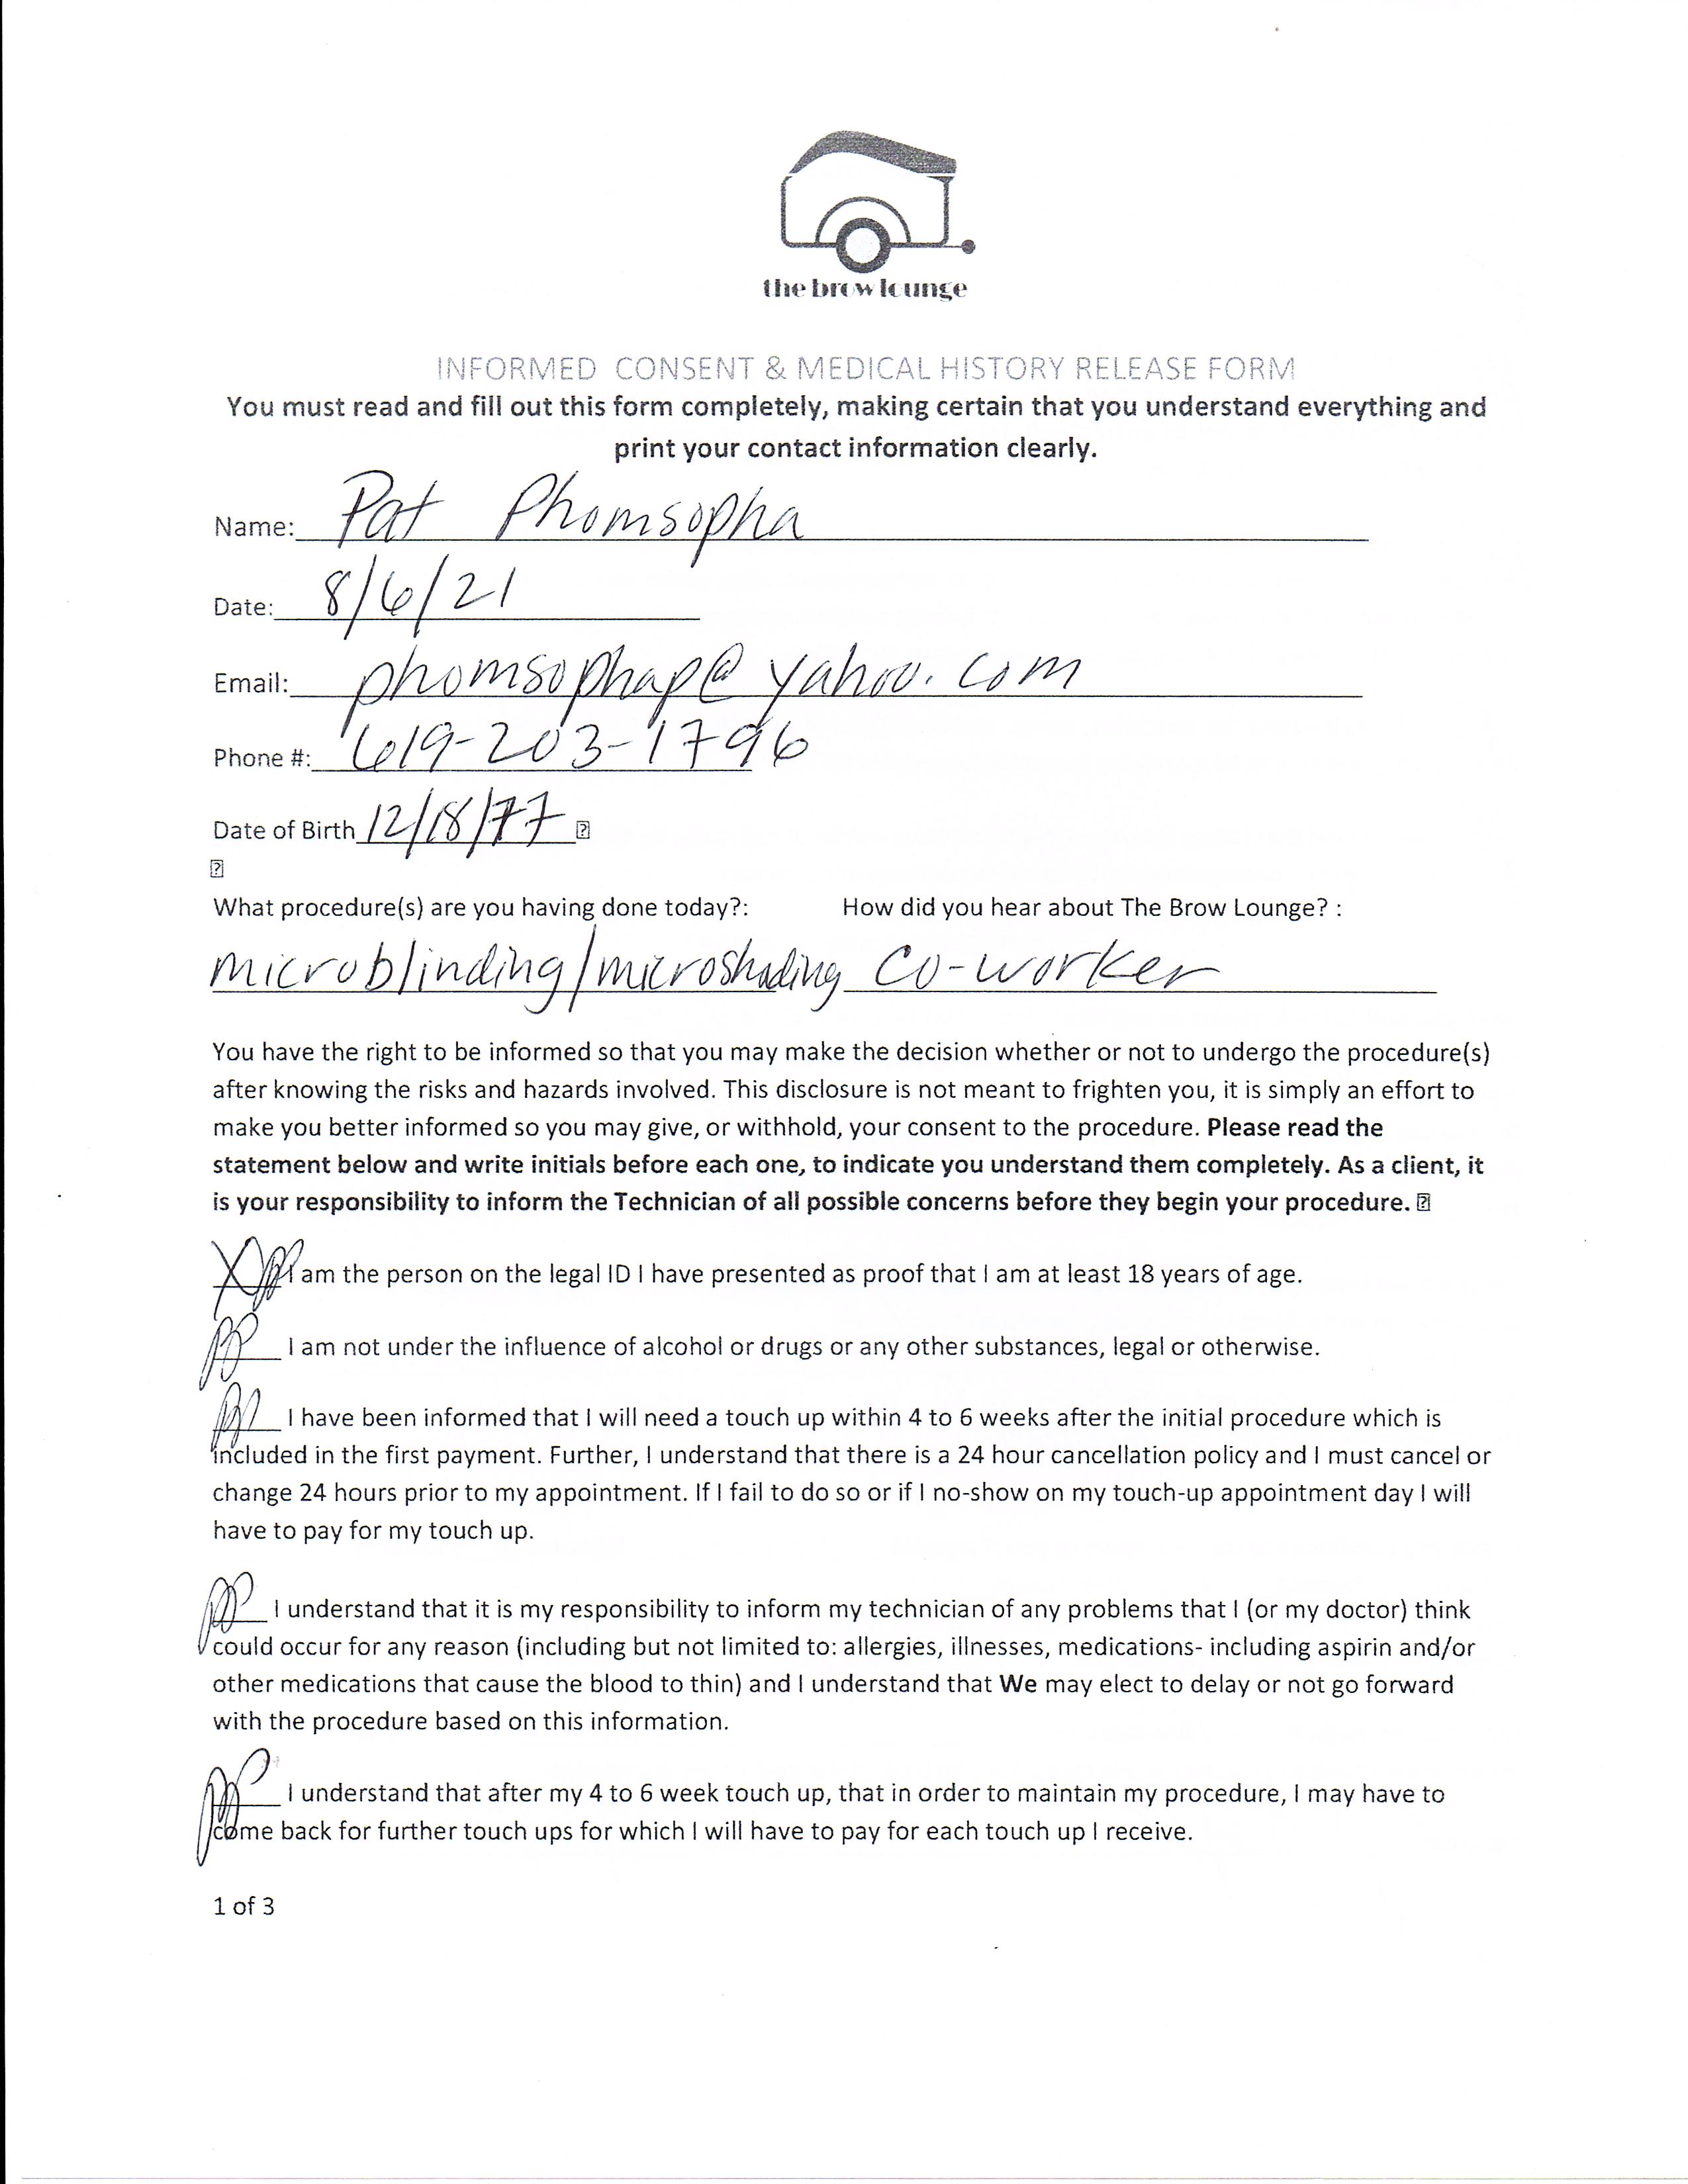 the brow lounge
INFORMED CONSENT & MEDICAL HISTORY RELEASE FORM
You must read and fill out this form completely, making certain that you understand everything and
print your contact information clearly.
Name: Pat Phomsopha
Date: 8/6/21
Email: phomsophap@yahoo.com
Phone #: 619-203-1796
Date of Birth 12/18/77
What procedure(s) are you having done today?: How did you hear about The Brow Lounge? :
microblinding/microshading co-worker
You have the right to be informed so that you may make the decision whether or not to undergo the procedure(s)
after knowing the risks and hazards involved. This disclosure is not meant to frighten you, it is simply an effort to
make you better informed so you may give, or withhold, your consent to the procedure. Please read the
statement below and write initials before each one, to indicate you understand them completely. As a client, it
is your responsibility to inform the Technician of all possible concerns before they begin your procedure.
X PP I am the person on the legal ID I have presented as proof that I am at least 18 years of age.
PP I am not under the influence of alcohol or drugs or any other substances, legal or otherwise.
PP I have been informed that I will need a touch up within 4 to 6 weeks after the initial procedure which is
included in the first payment. Further, I understand that there is a 24 hour cancellation policy and I must cancel or
change 24 hours prior to my appointment. If I fail to do so or if I no-show on my touch-up appointment day I will
have to pay for my touch up.
PP I understand that it is my responsibility to inform my technician of any problems that I (or my doctor) think
could occur for any reason (including but not limited to: allergies, illnesses, medications- including aspirin and/or
other medications that cause the blood to thin) and I understand that We may elect to delay or not go forward
with the procedure based on this information.
PP I understand that after my 4 to 6 week touch up, that in order to maintain my procedure, I may have to
come back for further touch ups for which I will have to pay for each touch up I receive.
1 of 3